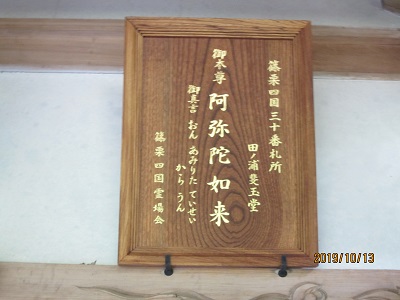 篠栗四国三十番札所
田ノ浦斐玉堂
御本尊 阿弥陀如来
御真言 おん あみりた ていせい
から うん
篠栗四国霊場会
2019/10/13